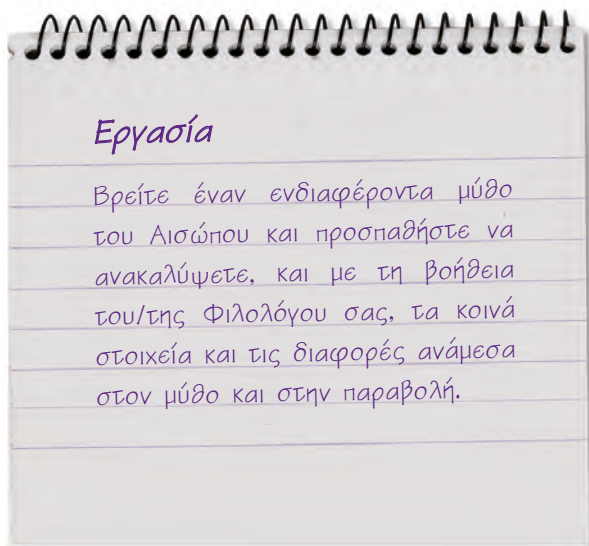 Εργασία
Βρείτε έναν ενδιαφέροντα μύθο
του Αισώπου και προσπαθήστε να
ανακαλύψετε, και με τη βοήθεια
του/της Φιλολόγου σας, τα κοινά
στοιχεία και τις διαφορές ανάμεσα
στον μύθο και στην παραβολή.